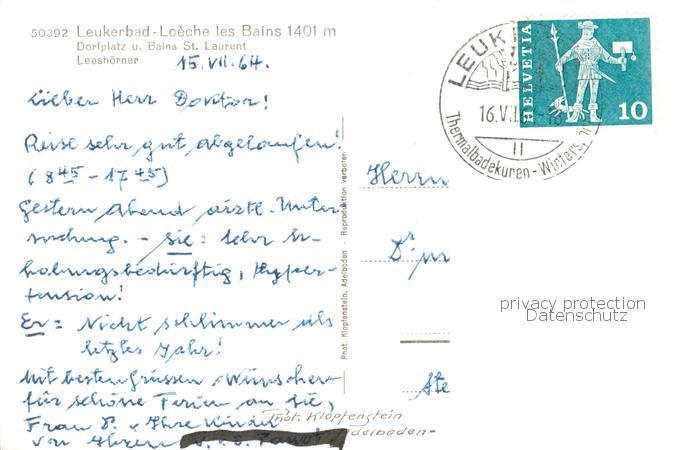 50392 Leukerbad-Loèche les Bains 1401 m
Dorfplatz u. Bains St. Laurent
Leeshörner
15.VII.64.
Lieber Herr Doktor!
Reise sehr gut abgelaufen!
(8 45 - 17 45)
Gestern Abend ärztl. Unter-
suchung. - Sie: Sehr er-
holungsbedürftig, Hyper-
tension!
Er = Nicht schlimmer als
letztes Jahr!
Mit besten Grüssen u. Wünschen
für schöne Ferien an Sie,
Frau D. u. Ihre Kinder
von Ihren
Phot. Klopfenstein
Adelboden-
Phot. Klopfenstein, Adelboden - Reproduktion verboten
Herrn
Dr m
Ste
LEUK
16.VII.
11
Thermalbadekuren - Winters
HELVETIA
10
privacy protection
Datenschutz